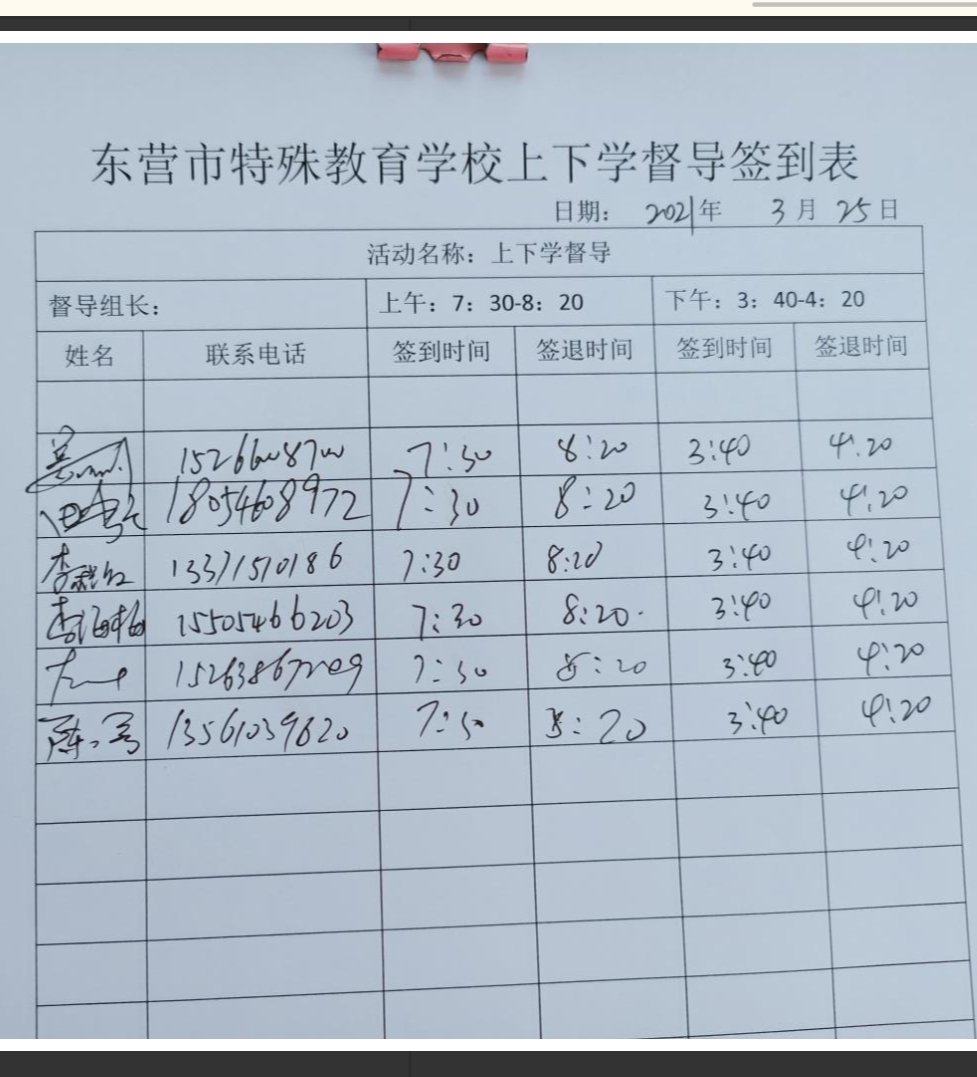 东营市特殊教育学校上下学督导签到表
日期: 2021年 3月 25日
活动名称: 上下学督导
督导组长: 上午: 7: 30-8: 20 下午: 3: 40-4: 20
姓名 联系电话 签到时间 签退时间 签到时间 签退时间
7:30 8:20 3:40 4:20
18054608972 7:30 8:20 3:40 4:20
李 13371510186 7:30 8:20 3:40 4:20
李海梅 15505466203 7:30 8:20 3:40 4:20
7:30 8:20 3:40 4:20
陈 13561039820 7:30 8:20 3:40 4:20